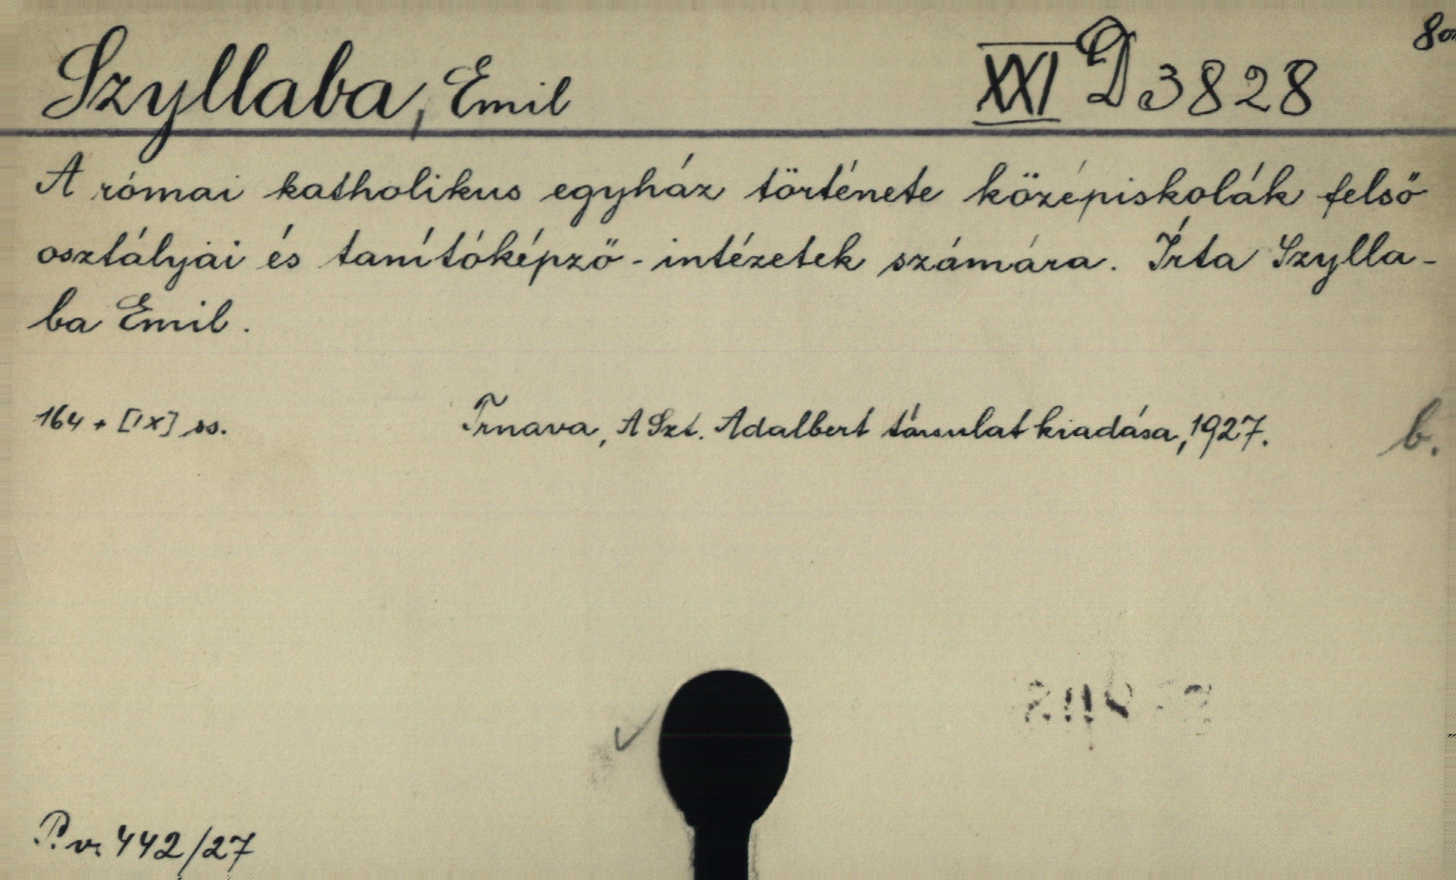 Szyllaba, Emil XXI D 3828
A római katholikus egyház története középiskolák felső
osztályai és tanítóképző-intézetek számára. Írta Szylla-
ba Emil.
164 + [IX] ss. Trnava, A Szt. Adalbert társulat kiadása, 1927. b.
P.v. 442/27